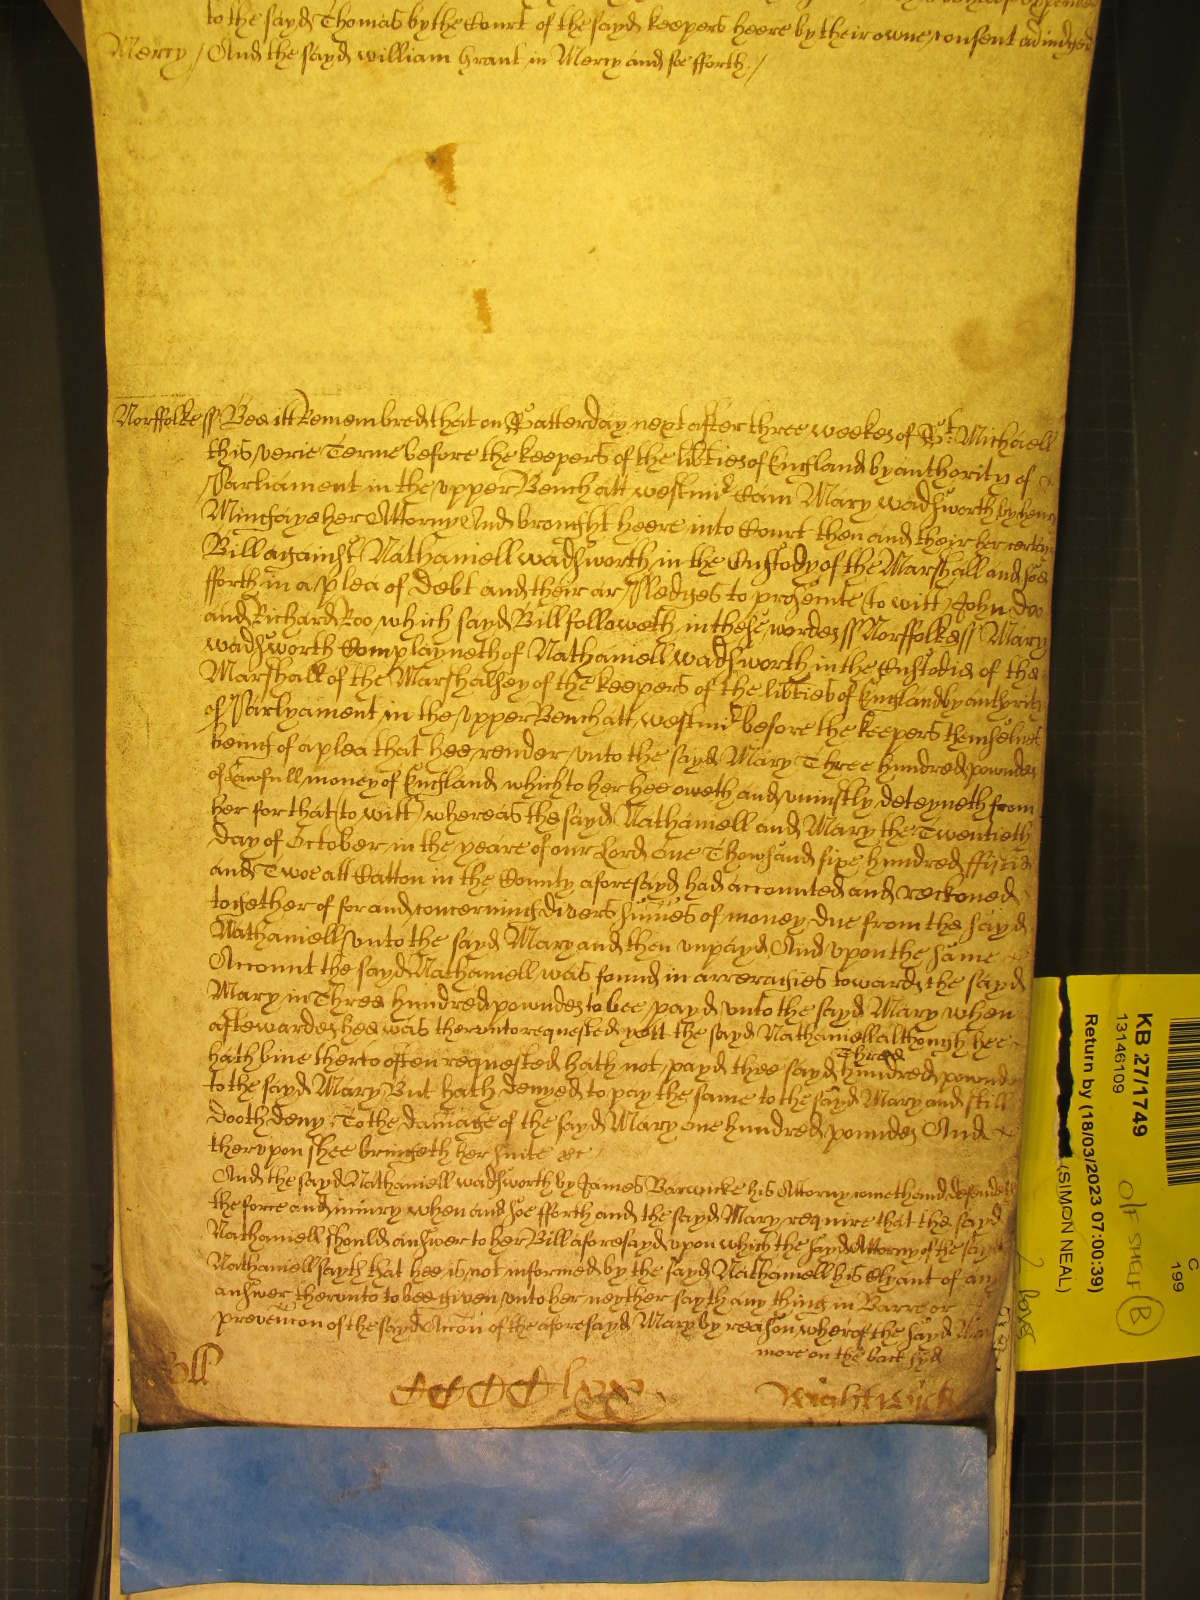 to the sayd Thomas by the Court of the sayd keepers heere by their owne consent adiudged
Mercy / And the sayd william Grant in Mercy and soe fforth /
Norffolke ss Bee itt Remembred that on Satterday next after three weekes of St Michaell
this verie Terme before the keepers of the lib'ties of England by authority of
Parliament in the vpper Bench att westmr Cam Mary wadsworth by henry
Mingaye her Attorny And brought heere into Court then and their her certayn
Bill against Nathaniell wadsworth in the Custody of the Marshall and soe
fforth in a plea of Debt and their ar Pledges to prosecute (to witt) John Doo
and Richard Roo which sayd Bill followeth in these wordes ss Norffolke ss Mary
wadsworth Complayneth of Nathaniell wadsworth in the Custodie of the
Marshall of the Marshalsey of the keepers of the lib'ties of England by authoritie
of Parlyament in the vpper Bench att westmr before the keepers themselues
being of a plea that hee render vnto the sayd Mary Three hundred powndes
of Lawfull money of England which to her hee oweth and vniustly deteyneth from
her for that (to witt) whereas the sayd Nathaniell and Mary the Twentieth
day of October in the yeare of our Lord One Thowsand sixe hundred ffiftie
and Twoe att Catton in the County aforesayd had accounted and reckoned
together of for and concerning divers sum̃es of money due from the sayd
Nathaniell vnto the sayd Mary and then vnpayd And vpon the same
Account the sayd Nathaniell was found in arreragies towards the sayd
Mary in Three hundred powndes to bee payd vnto the sayd Mary when
afterwardes hee was therevnto requested yett the sayd Nathaniell although hee
hath bine therto often requested hath not payd thee sayd Three hundred pownds
to the sayd Mary But hath denyed to pay the same to the sayd Mary and still
dooth deny To the damage of the sayd Mary one hundred powndes And
thervpon shee bringeth her suite &c
And the sayd Nathaniell wadsworth by James Barwicke his Attorny cometh and defendeth
the force and iniury when and soe fforth and the sayd Mary require that the sayd
Nathaniell should answer to her Bill aforesayd vpon which the sayd Attorny of the sayd
Nathaniell sayth that hee is not informed by the sayd Nathaniell his Clyant of any
answer thervnto to bee given vnto her neyther sayth any thing in Barre or
prevenc̃on of the sayd Acc̃on of the aforesayd Mary by reason wherof the sayd Mary
more on the back syd
Roll
CCCC lxx
Wightwick
KB 27/1749
13146109
Return by (18/03/2023 07:00:39)
(SIMON NEAL)
C
199
O/F SHELF B
2 boxes